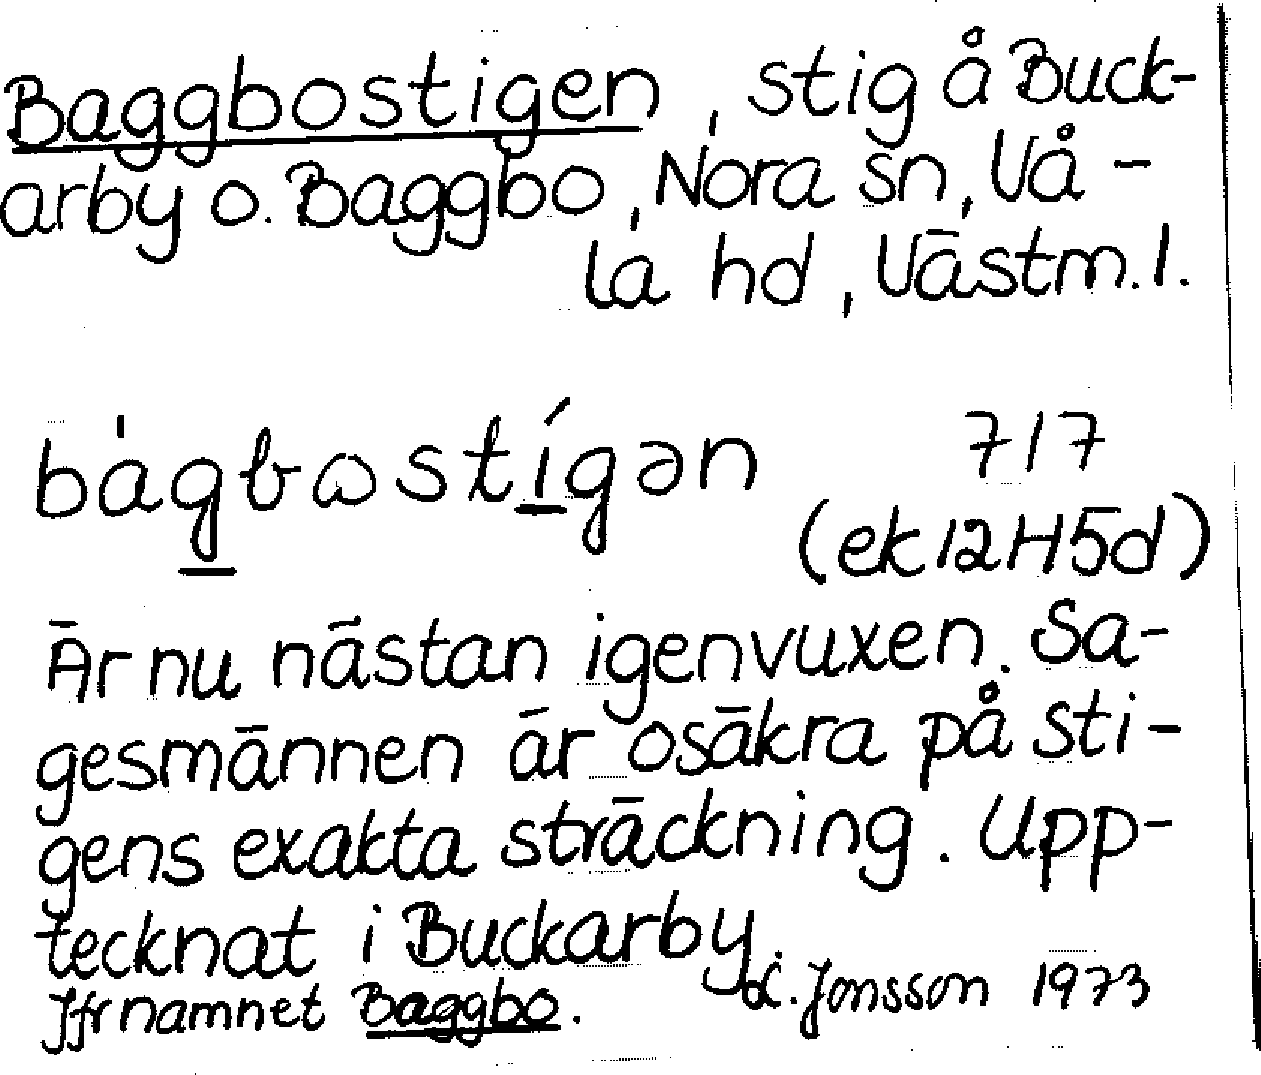 Baggbostigen, stig å Buck-
arby o. Baggbo, Nora sn, Vå-
la hd, Västm.l.
bágbⱺstígən 717
(ek 12H5d)
Är nu nästan igenvuxen. Sa-
gesmännen är osäkra på sti-
gens exakta sträckning. Upp-
tecknat i Buckarby.
Jfr namnet Baggbo. L. Jonsson 1973